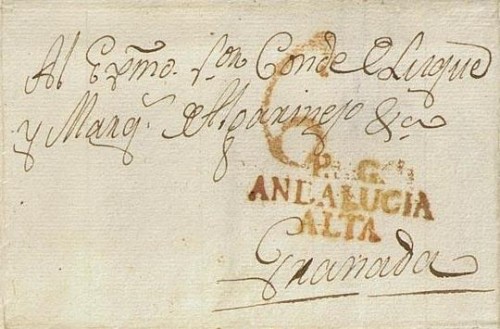 Al Exmo. Sor. Conde de Luque
y Marqs. de Algarinejo &ca
6
P. G.
ANDALUCIA
ALTA
Granada